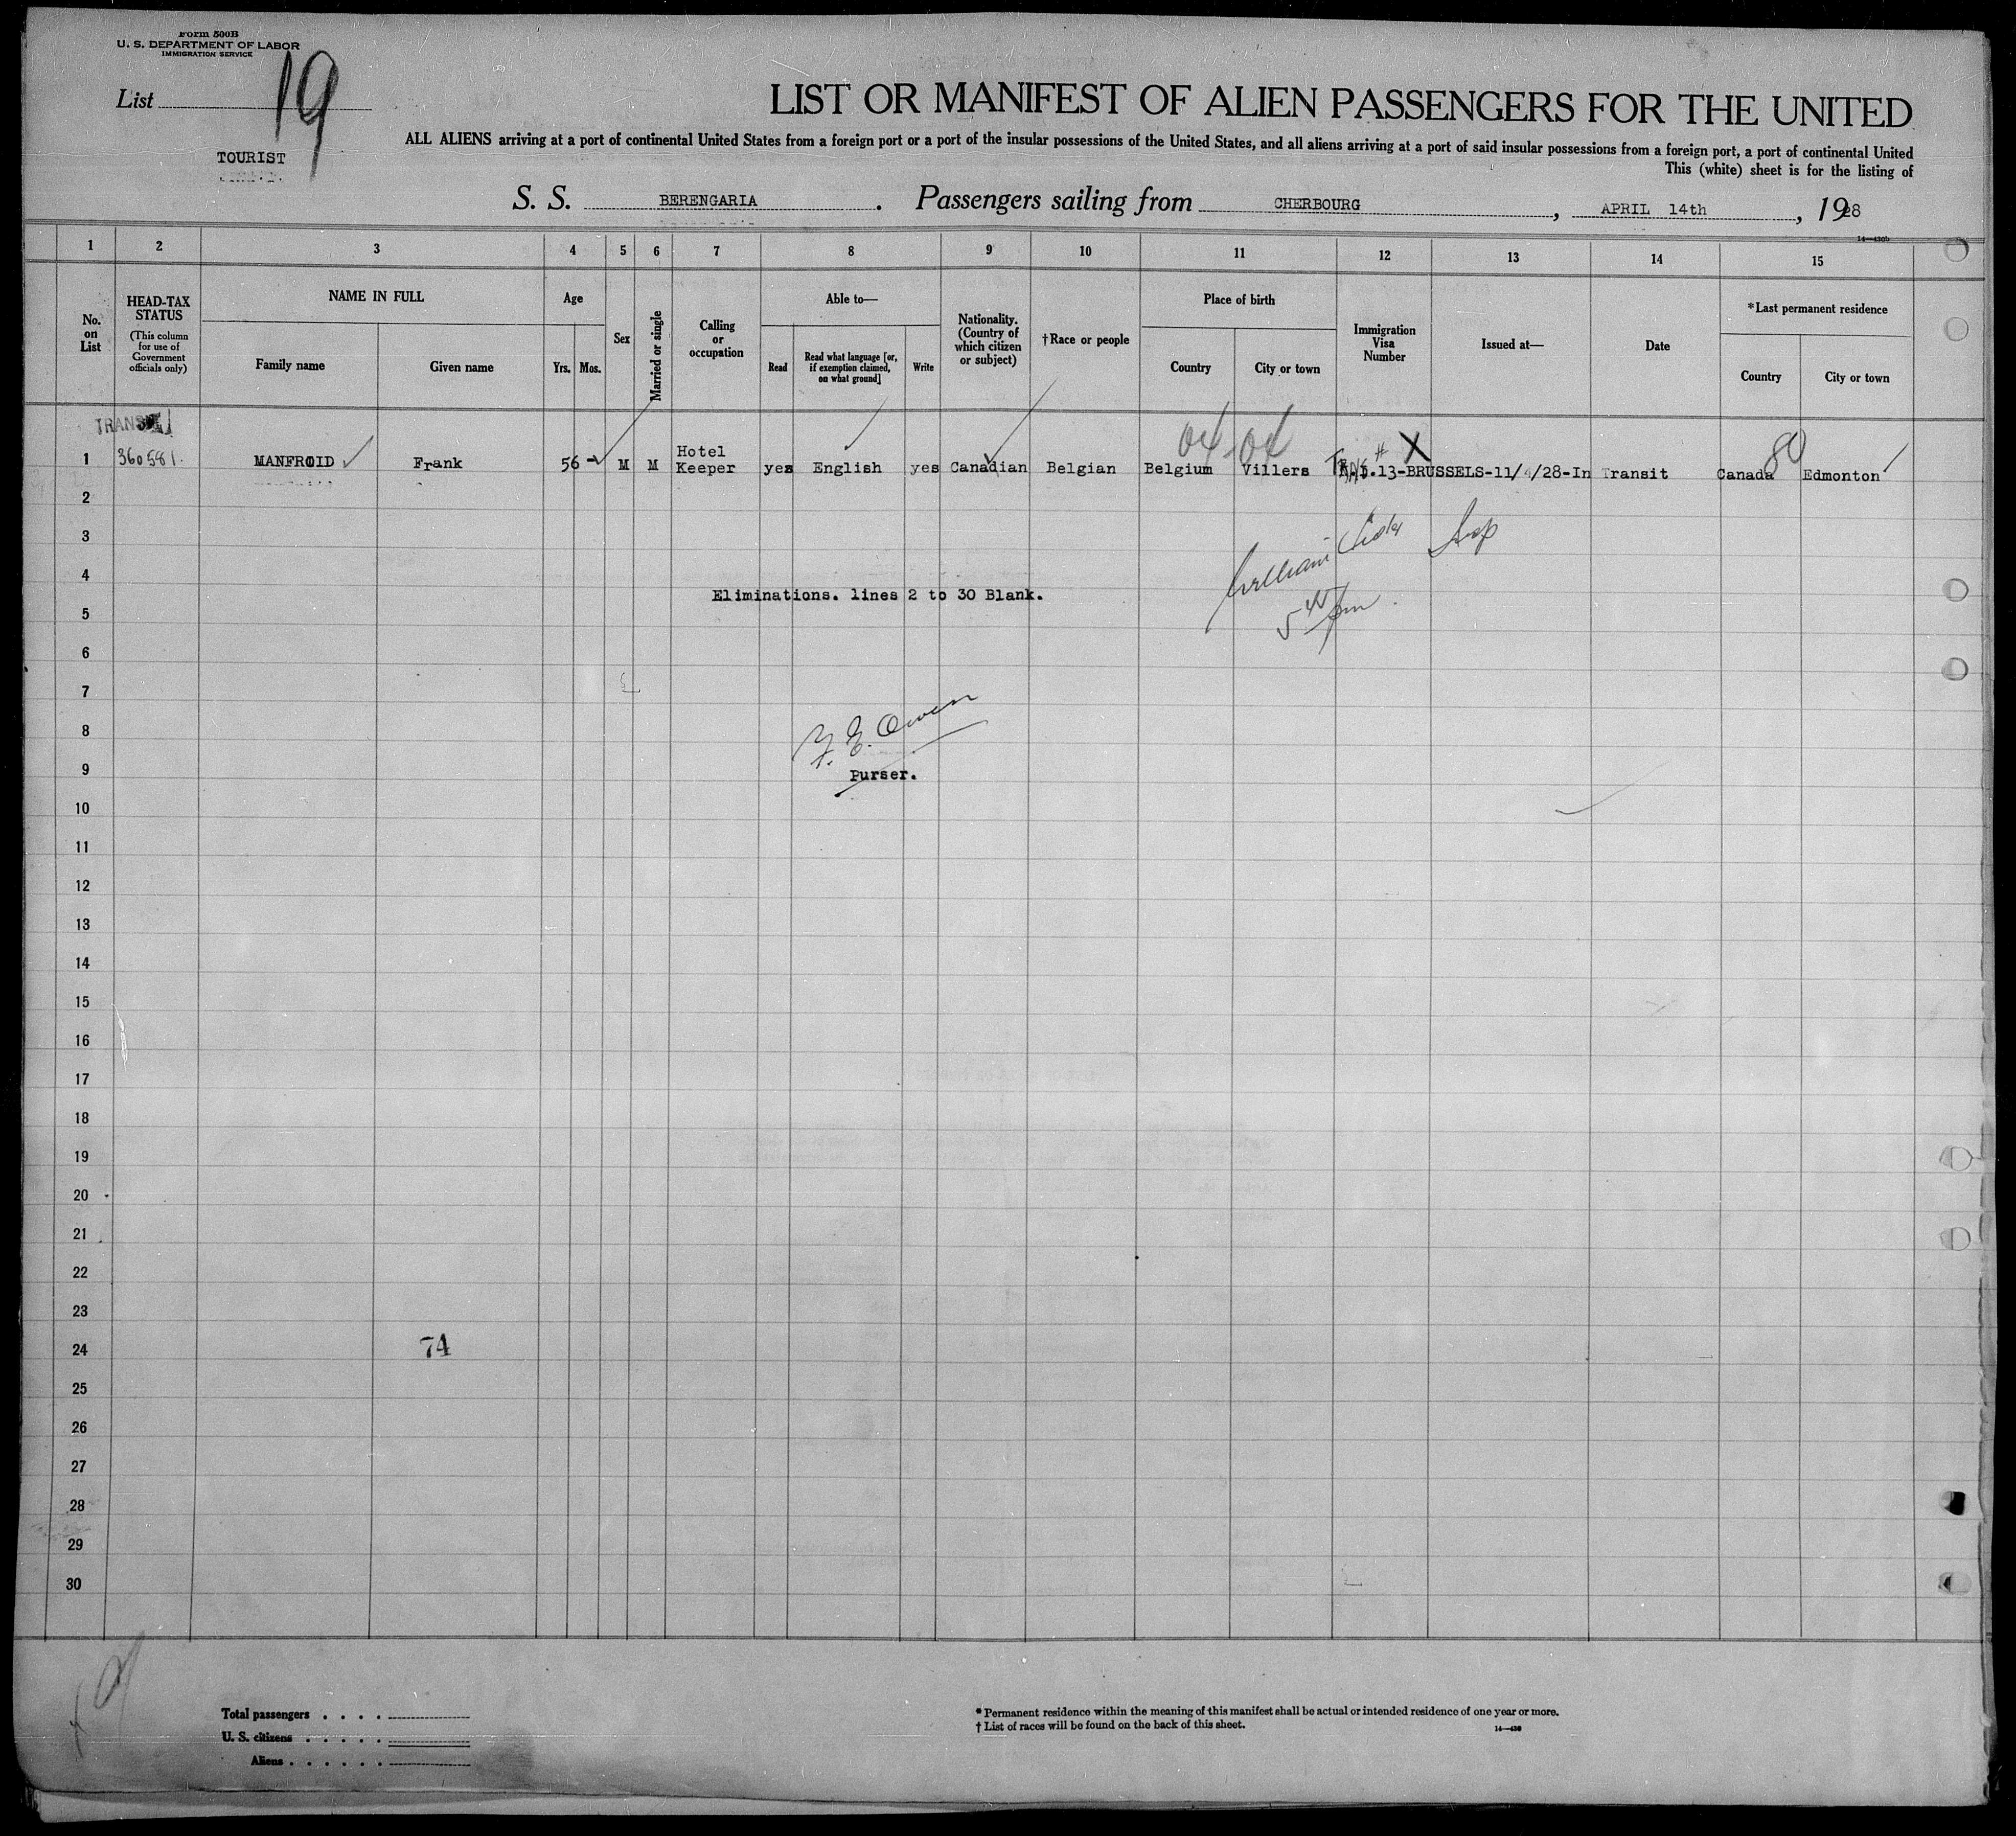 Form 500B
U. S. DEPARTMENT OF LABOR
IMMIGRATION SERVICE
List 19
LIST OR MANIFEST OF ALIEN PASSENGERS FOR THE UNITED
ALL ALIENS arriving at a port of continental United States from a foreign port or a port of the insular possessions of the United States, and all aliens arriving at a port of said insular possessions from a foreign port, a port of continental United
TOURIST
This (white) sheet is for the listing of
S. S. BERENGARIA. Passengers sailing from CHERBOURG, APRIL 14th, 1928
1 2 3 4 5 6 7 8 9 10 11 12 13 14 15
No. on List
HEAD-TAX STATUS
(This column for use of Government officials only)
NAME IN FULL
Family name
Given name
Age
Yrs. Mos.
Sex
Married or single
Calling or occupation
Able to—
Read
Read what language [or, if exemption claimed, on what ground]
Write
Nationality. (Country of which citizen or subject)
†Race or people
Place of birth
Country
City or town
Immigration Visa Number
Issued at—
Date
*Last permanent residence
Country
City or town
TRANSIT
04 04 X 80
1 360581 MANFROID Frank 56 M M Hotel Keeper yes English yes Canadian Belgian Belgium Villers 13-BRUSSELS-11/4/28-In Transit Canada Edmonton
2
3
4
William
Eliminations. lines 2 to 30 Blank.
5
5 45 pm
6
7
8
F. E. Owen
9
Purser.
10
11
12
13
14
15
16
17
18
19
20
21
22
23
24
74
25
26
27
28
29
30
Total passengers . . . .
U. S. citizens . . . . .
Aliens . . . . . .
* Permanent residence within the meaning of this manifest shall be actual or intended residence of one year or more.
† List of races will be found on the back of this sheet.
14—430